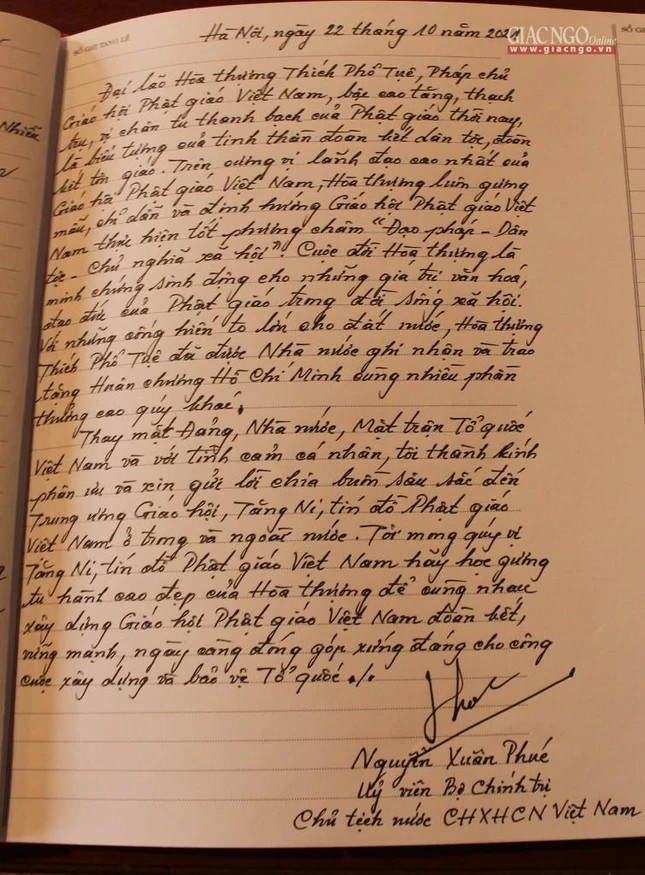 GIACNGO Online
www.giacngo.vn
SỔ GHI TANG LỄ
SỔ GI
Nhiễu
Hà Nội, ngày 22 tháng 10 năm 2021
Đại lão Hòa thượng Thích Phổ Tuệ, Pháp chủ
Giáo hội Phật giáo Việt Nam, bậc cao tăng, thạch
trụ, vị chân tu thanh bạch của Phật giáo thời nay,
là biểu tượng của tinh thần đoàn kết dân tộc, đoàn
kết tôn giáo. Trên cương vị lãnh đạo cao nhất của
Giáo hội Phật giáo Việt Nam, Hòa thượng luôn gương
mẫu, chỉ dẫn và định hướng Giáo hội Phật giáo Việt
Nam thực hiện tốt phương châm "Đạo pháp - Dân
tộc - Chủ nghĩa xã hội". Cuộc đời Hòa thượng là
minh chứng sinh động cho những giá trị văn hoá,
đạo đức của Phật giáo trong đời sống xã hội.
Với những cống hiến to lớn cho đất nước, Hòa thượng
Thích Phổ Tuệ đã được Nhà nước ghi nhận và trao
tặng Huân chương Hồ Chí Minh cùng nhiều phần
thưởng cao quý khác.
Thay mặt Đảng, Nhà nước, Mặt trận Tổ quốc
Việt Nam và với tình cảm cá nhân, tôi thành kính
phân ưu và xin gửi lời chia buồn sâu sắc đến
Trung ương Giáo hội, Tăng Ni, tín đồ Phật giáo
Việt Nam ở trong và ngoài nước. Tôi mong quý vị
Tăng Ni, tín đồ Phật giáo Việt Nam hãy học gương
tu hành cao đẹp của Hòa thượng để cùng nhau
xây dựng Giáo hội Phật giáo Việt Nam đoàn kết,
vững mạnh, ngày càng đóng góp xứng đáng cho công
cuộc xây dựng và bảo vệ Tổ quốc ./.
Nguyễn Xuân Phúc
Uỷ viên Bộ Chính trị
Chủ tịch nước CHXHCN Việt Nam